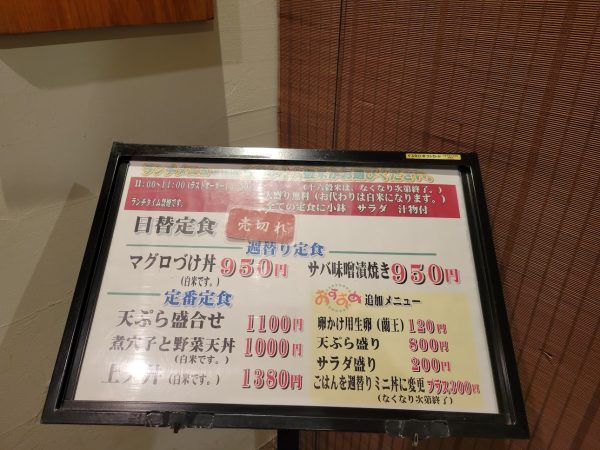 11:00~14:00 (ラストオーダー
(十六穀米は、なくなり次第終了。)
大盛り無料 (お代わりは白米になります。)
ランチタイム禁煙です。
全ての定食に小鉢 サラダ 汁物付
日替定食
売切れ
週替り定食
マグロづけ丼 950円
(白米です。)
サバ味噌漬焼き 950円
定番定食
天ぷら盛合せ 1100円
煮穴子と野菜天丼 1000円
(白米です。)
上天丼 (白米です。) 1380円
おすすめ 追加メニュー
卵かけ用生卵 (蘭王) 120円
天ぷら盛り 800円
サラダ盛り 200円
ごはんを週替りミニ丼に変更 プラス300円
(なくなり次第終了)